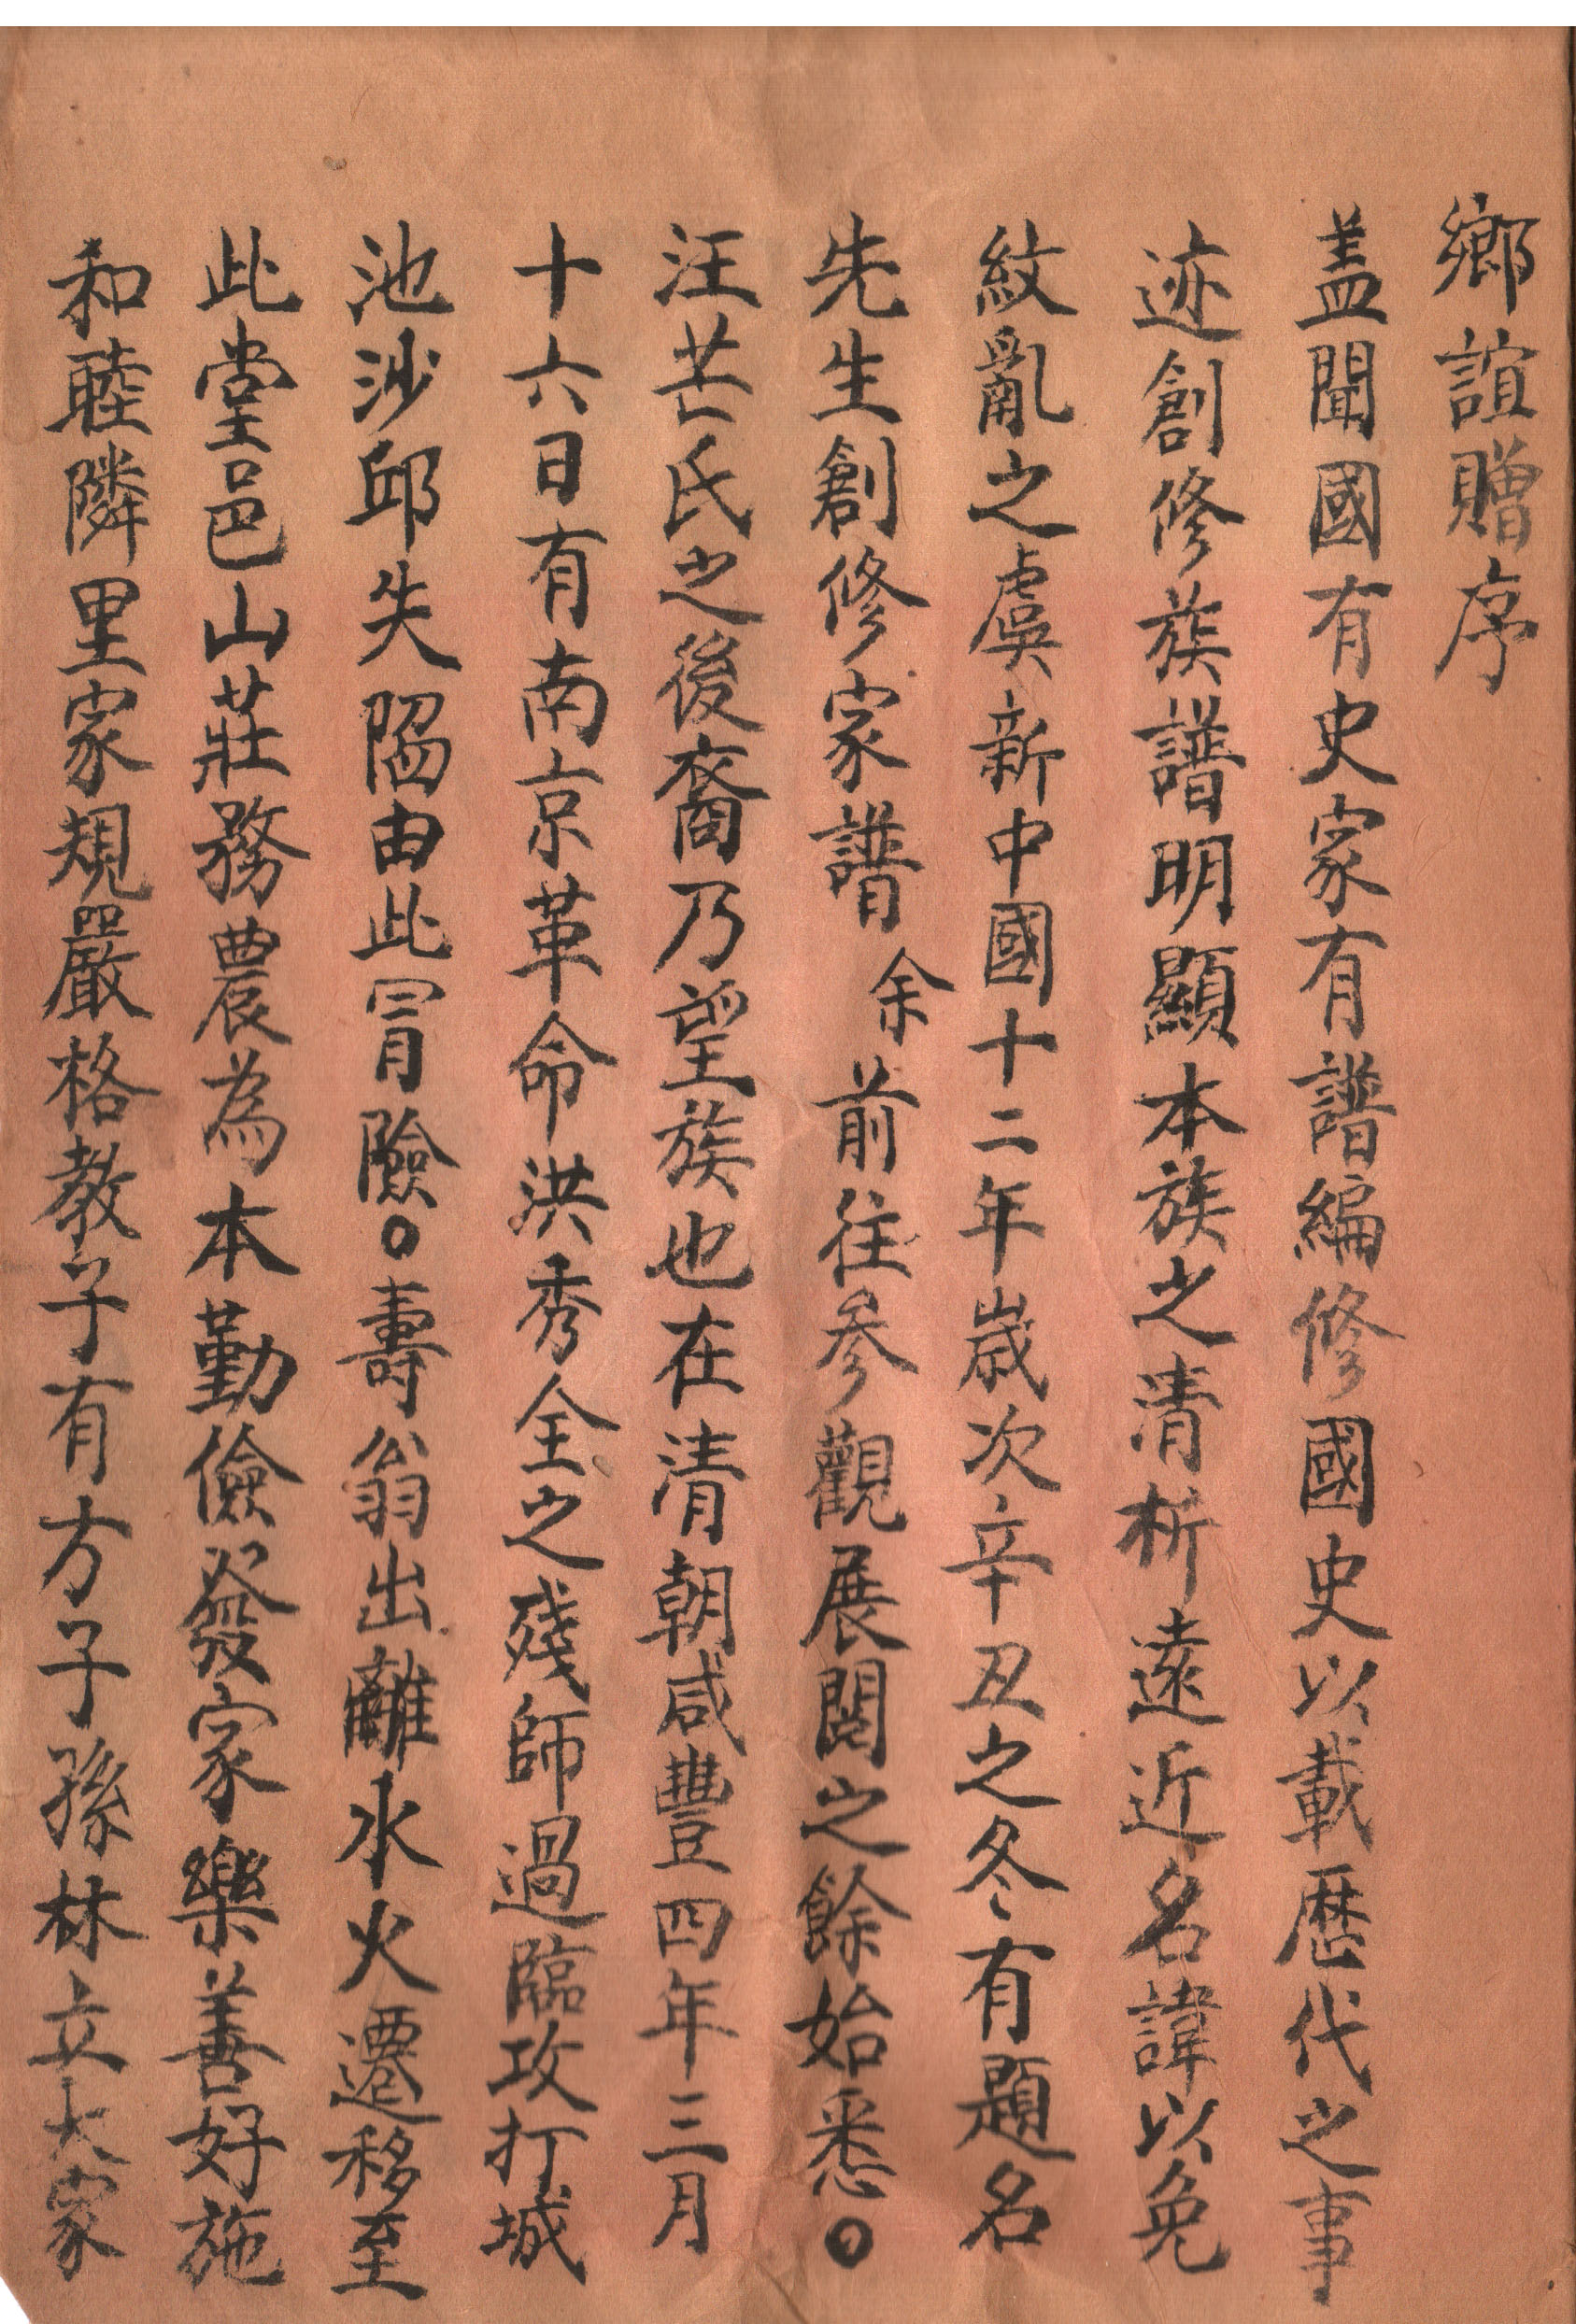 鄉誼贈序
盖聞國有史家有譜編修國史以載歷代之事
迹創修族譜明顯本族之清析遠近名諱以免
紋亂之虞新中國十二年歲次辛丑之冬有題名
先生創修家譜余前往參觀展閱之餘始悉。
汪芒氏之後裔乃望族也在清朝咸豐四年三月
十六日有南京革命洪秀全之殘師過臨攻打城
池沙邱失陷由此冐險。壽翁出離水火遷移至
此堂邑山莊務農為本勤儉發家樂善好施
和睦隣里家規嚴格教子有方子孫林立大家